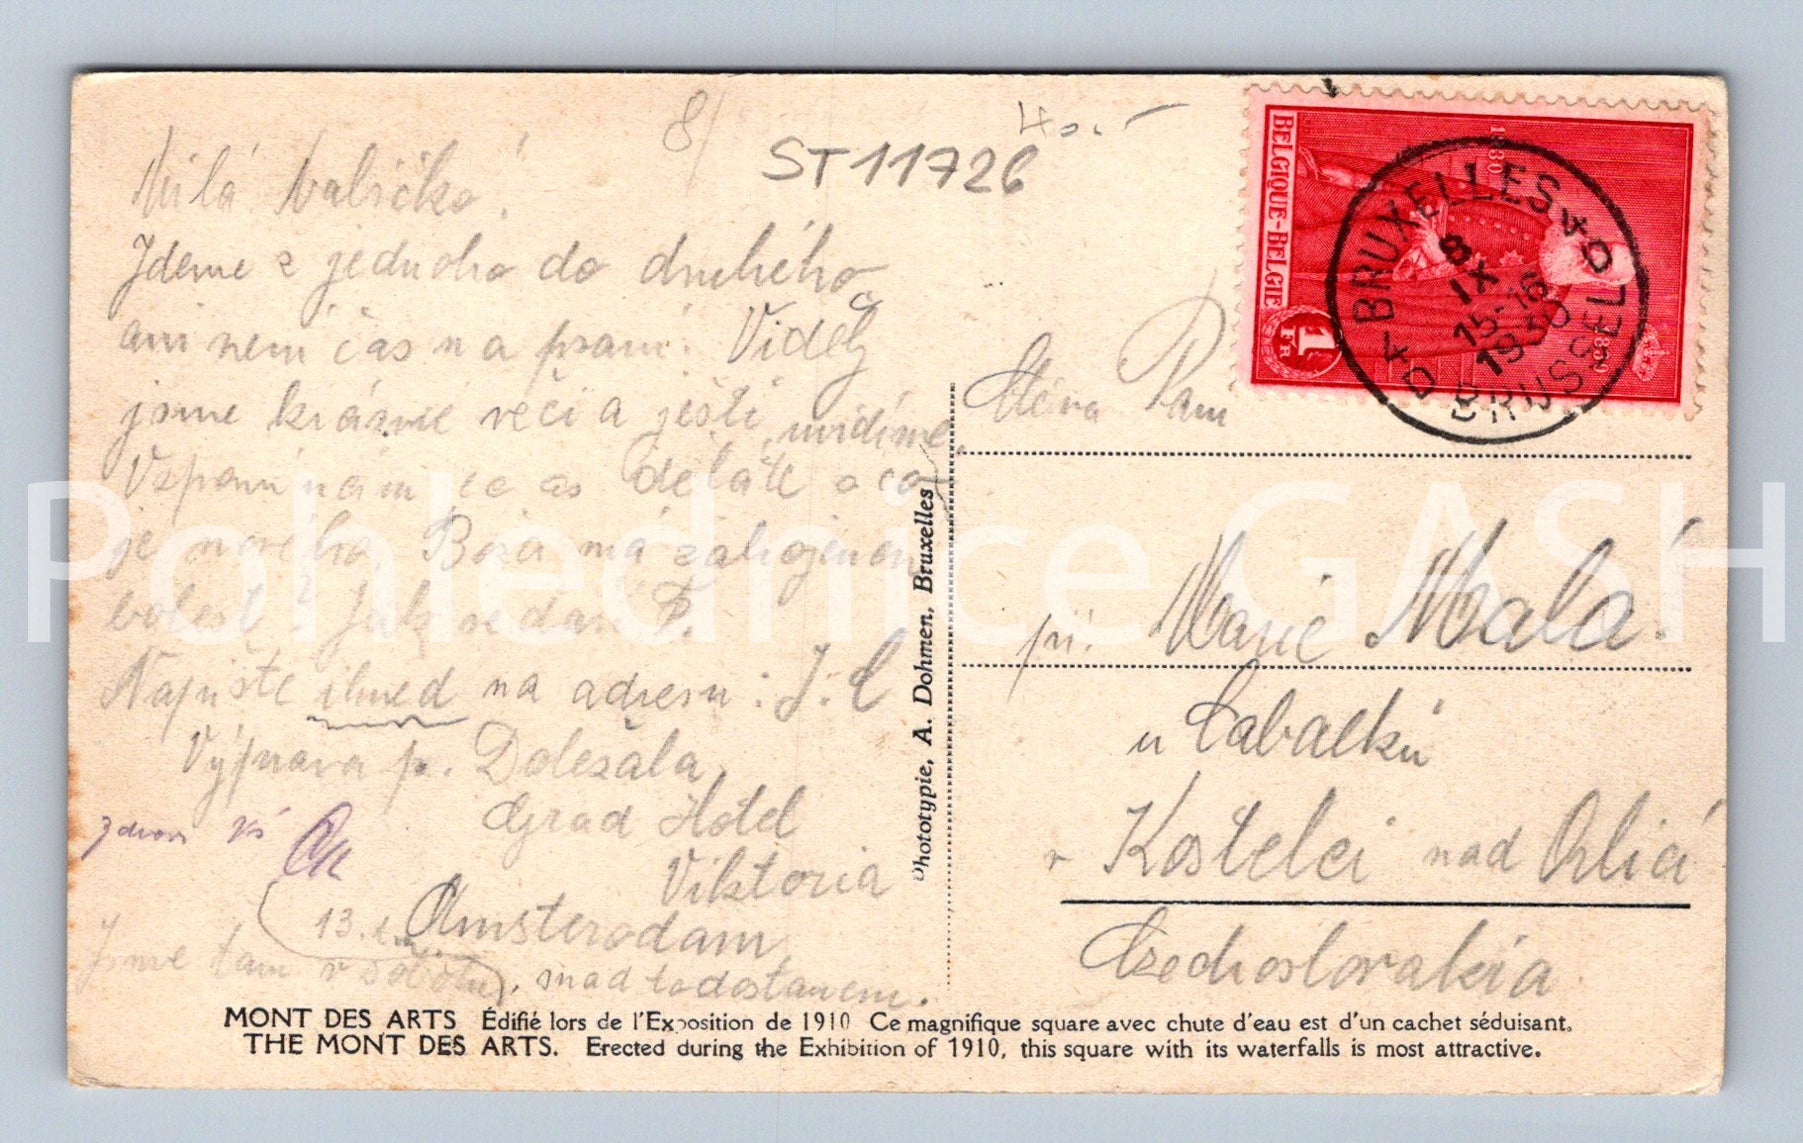 8/
40.-
ST11726
Milá babičko!
Jdeme z jednoho do druhého,
ani není čas na psaní. Viděli
jsme krásné věci a ještě uvidíme.
Vzpomínám co as děláte a co
je nového. má
bolest? Jak se daří
Napište ihned na adresu: J. Č
Výprava p. Doležala,
Grad Hotel
Viktoria
Amsterodam
13.
Jsme tam v sobotu, snad to dostanem.
BELGIQUE-BELGIE
1830
1 FR
BRUXELLES
8
IX
15-16
1930
BRUSSEL
Pani
Marie Malá
u
v Kostelci nad Orlicí
Czechoslovakia
Phototypie, A. Dohmen, Bruxelles
MONT DES ARTS Édifié lors de l'Exposition de 1910 Ce magnifique square avec chute d'eau est d'un cachet séduisant.
THE MONT DES ARTS. Erected during the Exhibition of 1910, this square with its waterfalls is most attractive.
Pohlednice GASH